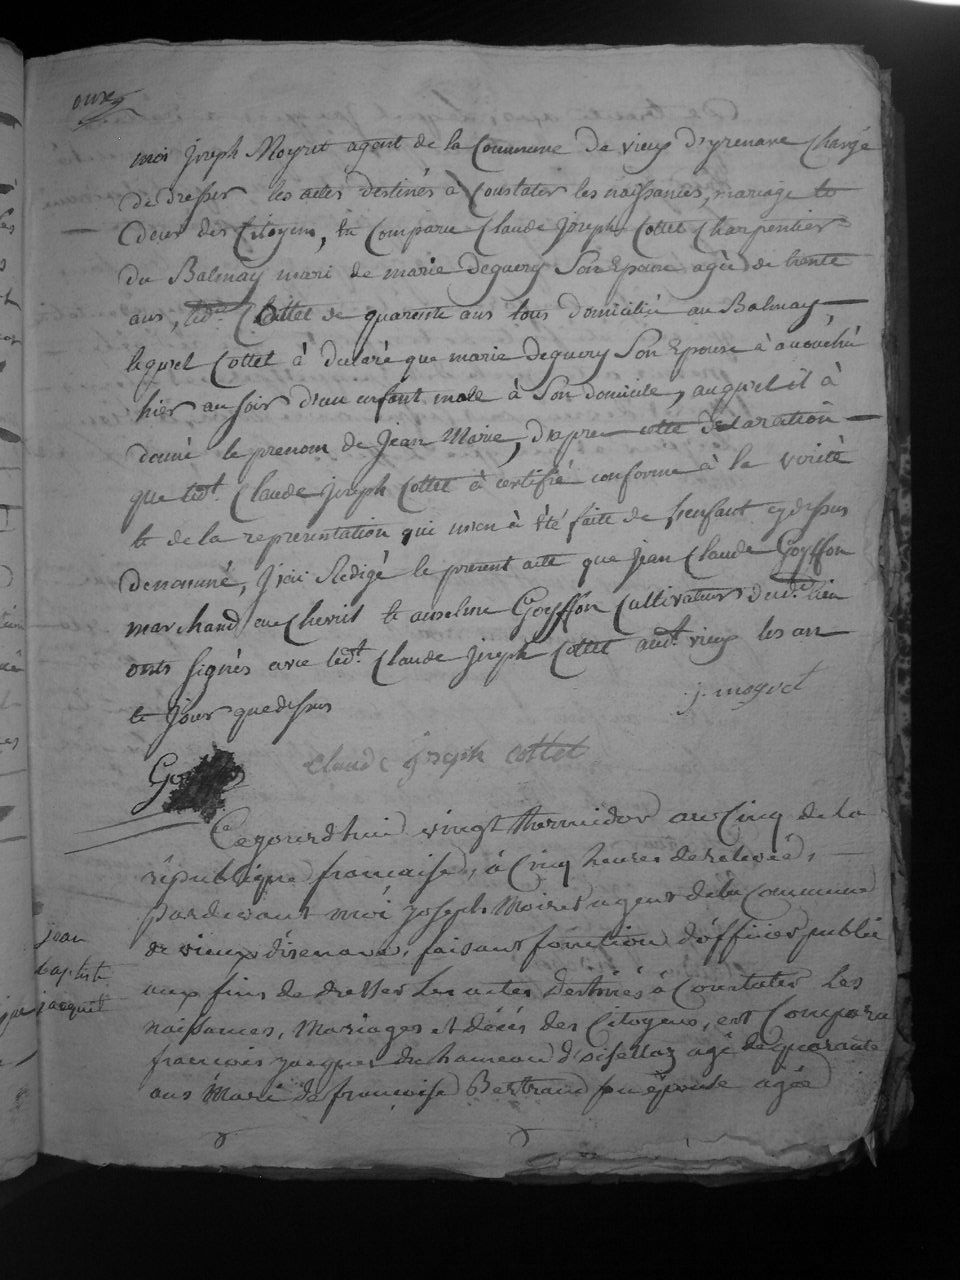 onze
moi Joseph Moyret agent de la Commune de vieux d'yzenave Chargé
de dresser les actes destinés a Constater les naissances, mariage et
deces des Citoyens, est Comparu Claude Joseph Cottet Charpentier
du Balmay mari de marie deguery Son Epouse agée de trente
ans, led. Cottet de quarente ans tous domicilié au Balmay,
lequel Cottet à declaré que marie deguery Son Epouse à acouché
hier au soir d'un enfant male à Son domicile, auquel il à
donné le prenom de Jean Marie, d'apres cette declaration
que ledt. Claude joseph Cottet à certifié conforme à la verité
et de la representation qui m'en à été faite de l'enfant cy dessus
denommé, J'ai Redigé le present acte que jean Claude Goyffon
marchand au Chevril et anselme Goyffon Cultivateur dud. lieu
onts signés avec ledt. Claude joseph Cottet audt. vieux les an
et Jour que dessus
j. moyret
Claude joseph cottet
Cejourdhui vingt thermidor an Cinq de la
république francaise, à Cinq heures de relevée,
pardevant moi joseph Moiret agent de la Commune
de vieux disenave, faisant fonction d'officier public
aux fins de dresser les actes destinés à Constater les
naissances, Mariages et décés des Citoyens, est Comparu
jean
baptiste
jacquet
francois jacquet du hameau d'oisellaz agé de quarante
ans Mari de francoise Bertrand son épouse agée